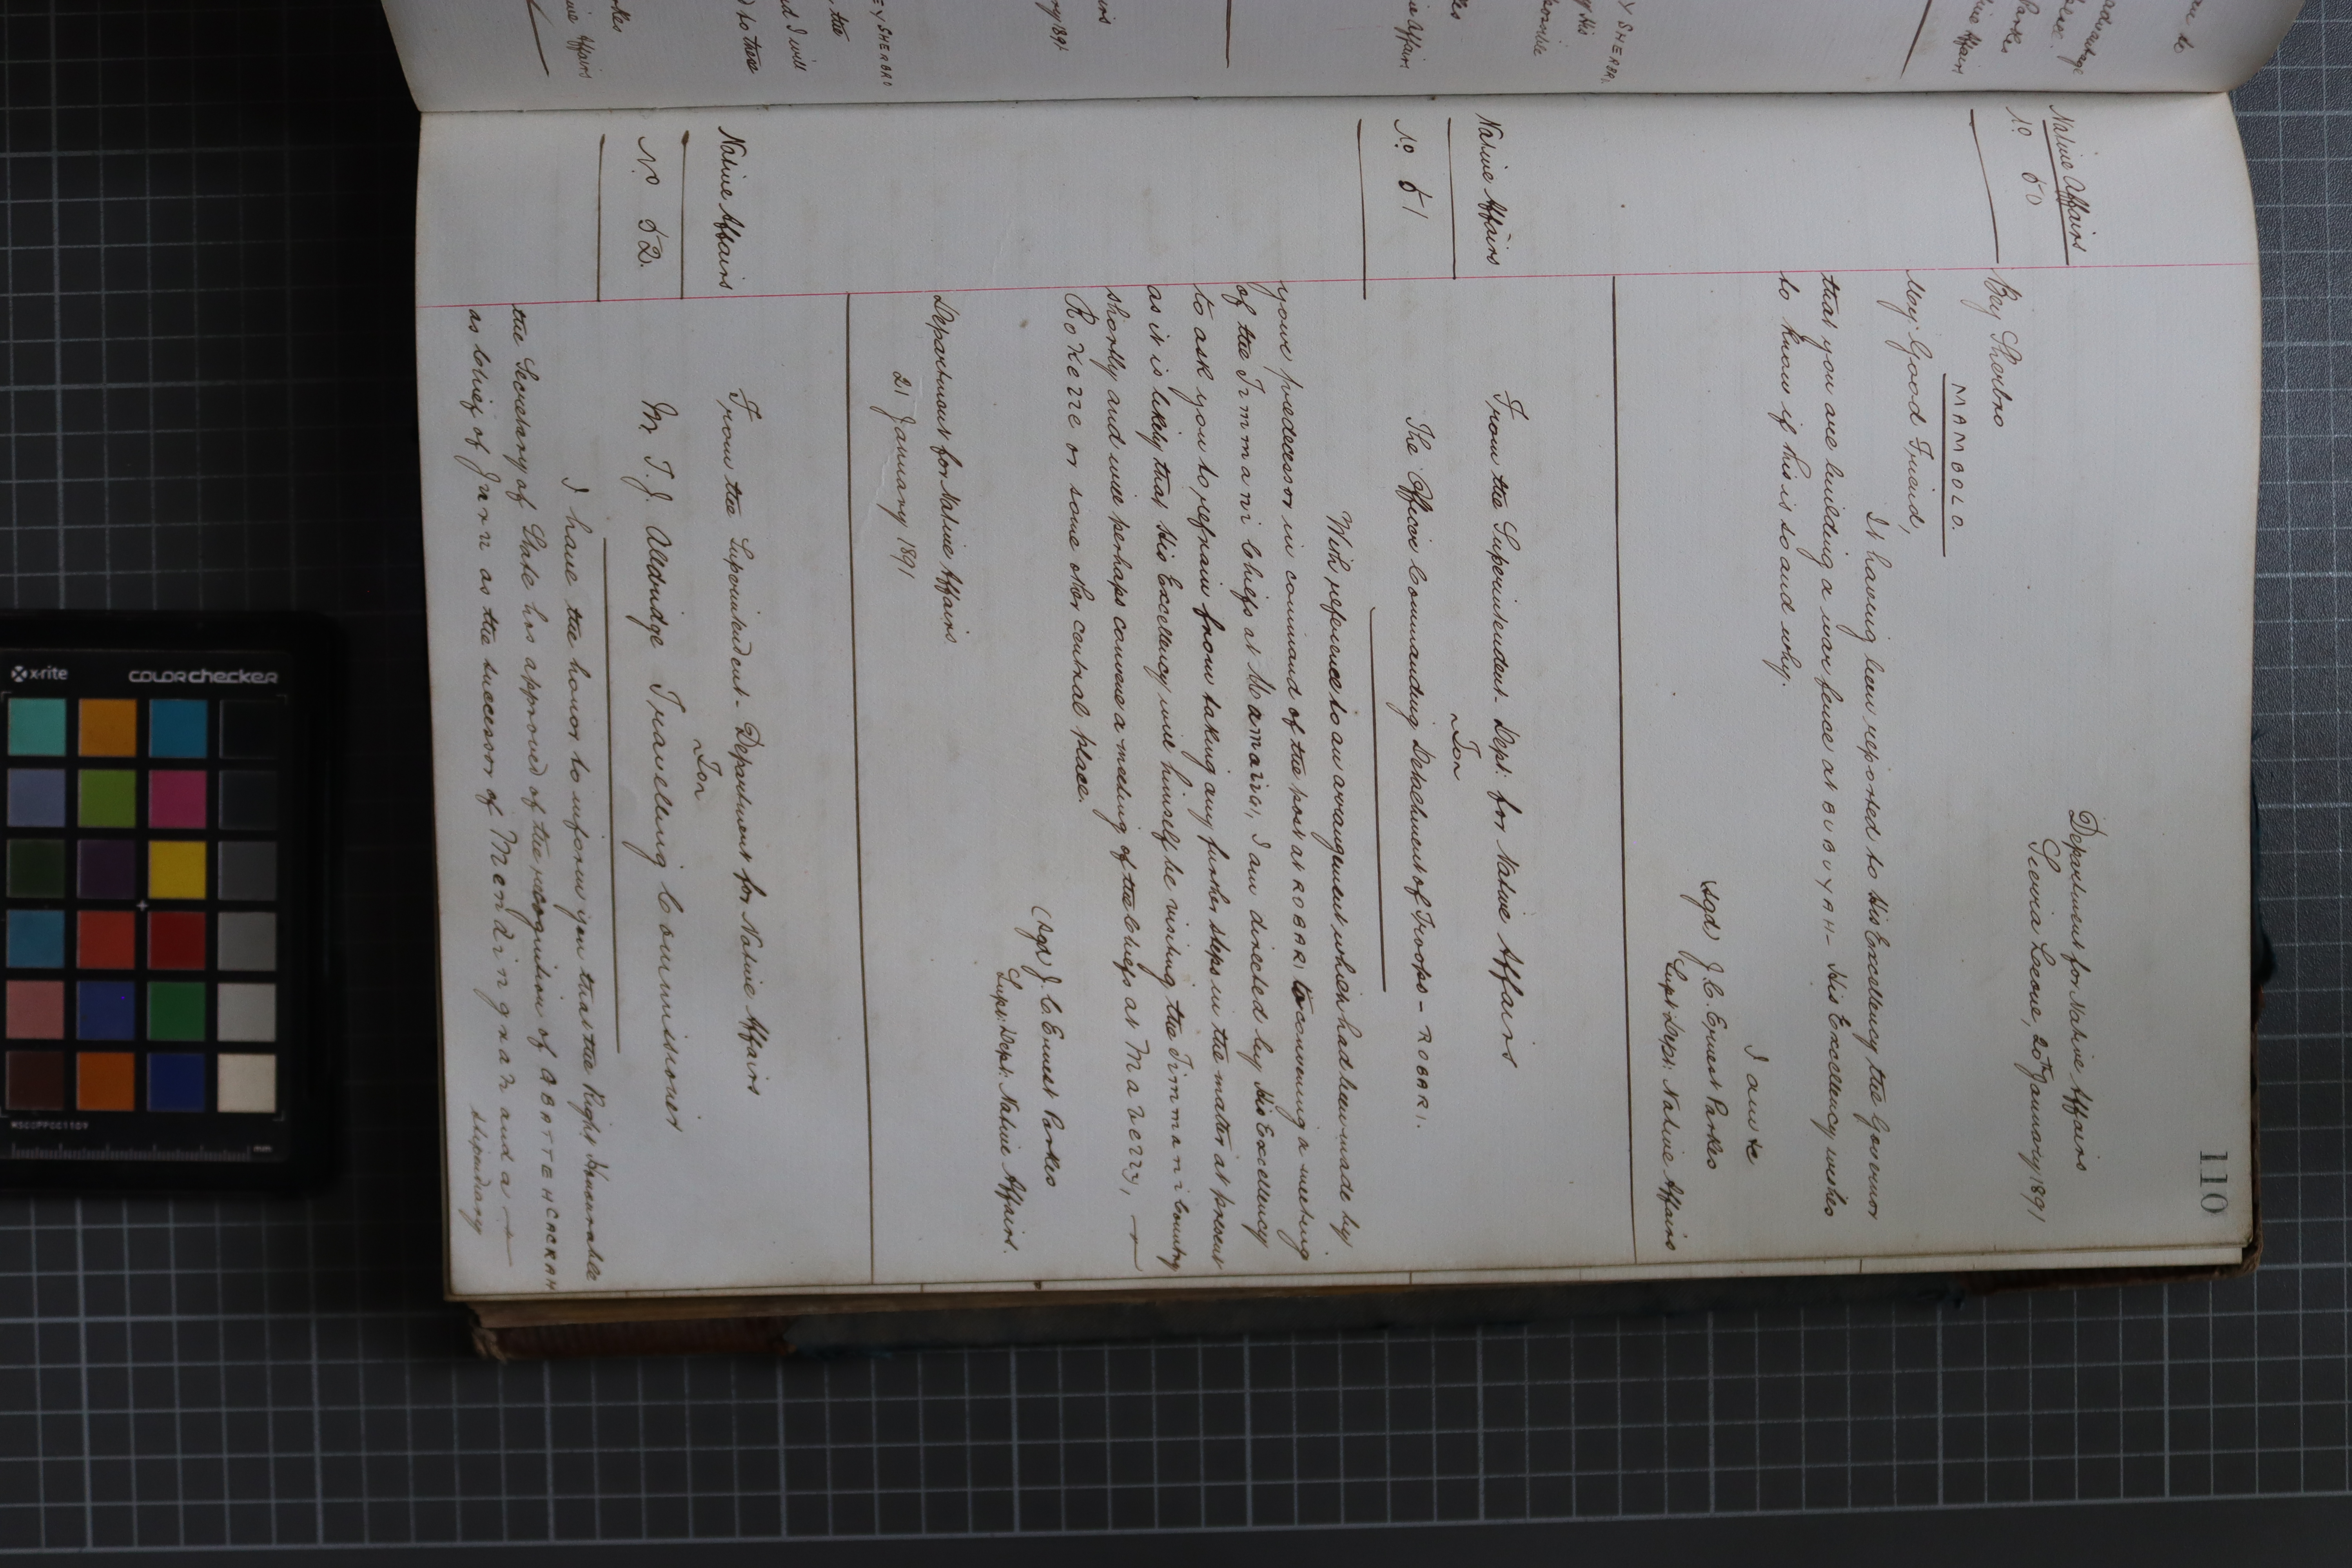 110
Native Affairs
No 50
Department for Native Affairs
Sierra Leone, 20th January 1891
Bey Sherbro
MAMBOLO.
My Good Friend,
It having been reported to His Excellency the Governor
that you are building a war fence at BUBUYAH - His Excellency wishes
to know if this is so and why.
I am &c
(sgd) J. C. Ernest Parkes
Supt Dept: Native Affairs
Native Affairs
No 51
From the Superintendent - Dept: for Native Affairs
To
The Officer Commanding Detachment of Troops - ROBARI.
With reference to an arrangement which had been made by
your predecessor in command of the post at ROBARI to convening a meeting
of the Timmani Chiefs at I am directed by His Excellency
to ask you to refrain from taking any further steps in the matter at present
as it is likely that His Excellency will himself be visiting the Timmani Country
shortly and will perhaps convene a meeting of the Chiefs at
or some other central place.
(sgd) J. C. Ernest Parkes
Supt: Dept: Native Affairs.
Department for Native Affairs
21 January 1891
Native Affairs
No 52.
From the Superintendent - Department for Native Affairs
To
Mr T. J. Alldridge Travelling Commissioner
I have the honor to inform you that the Right Honourable
the Secretary of State has approved of the recognition of
as Chief of as the successor of and a
stipendiary
Y SHERBRO
Native Affairs
Parkes
x-rite
colorchecker
MSCCPPCC1109
mm